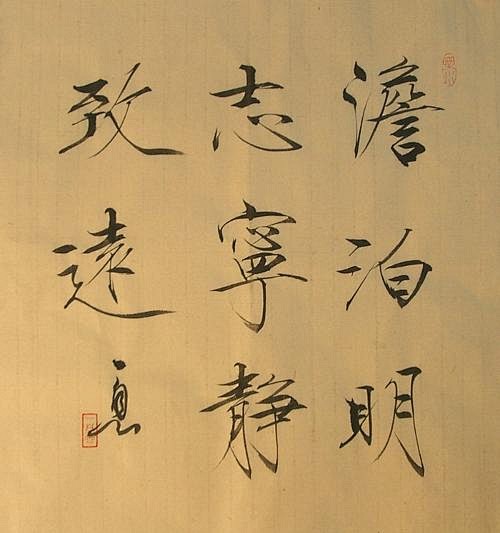 澹泊明
志寧靜
致遠